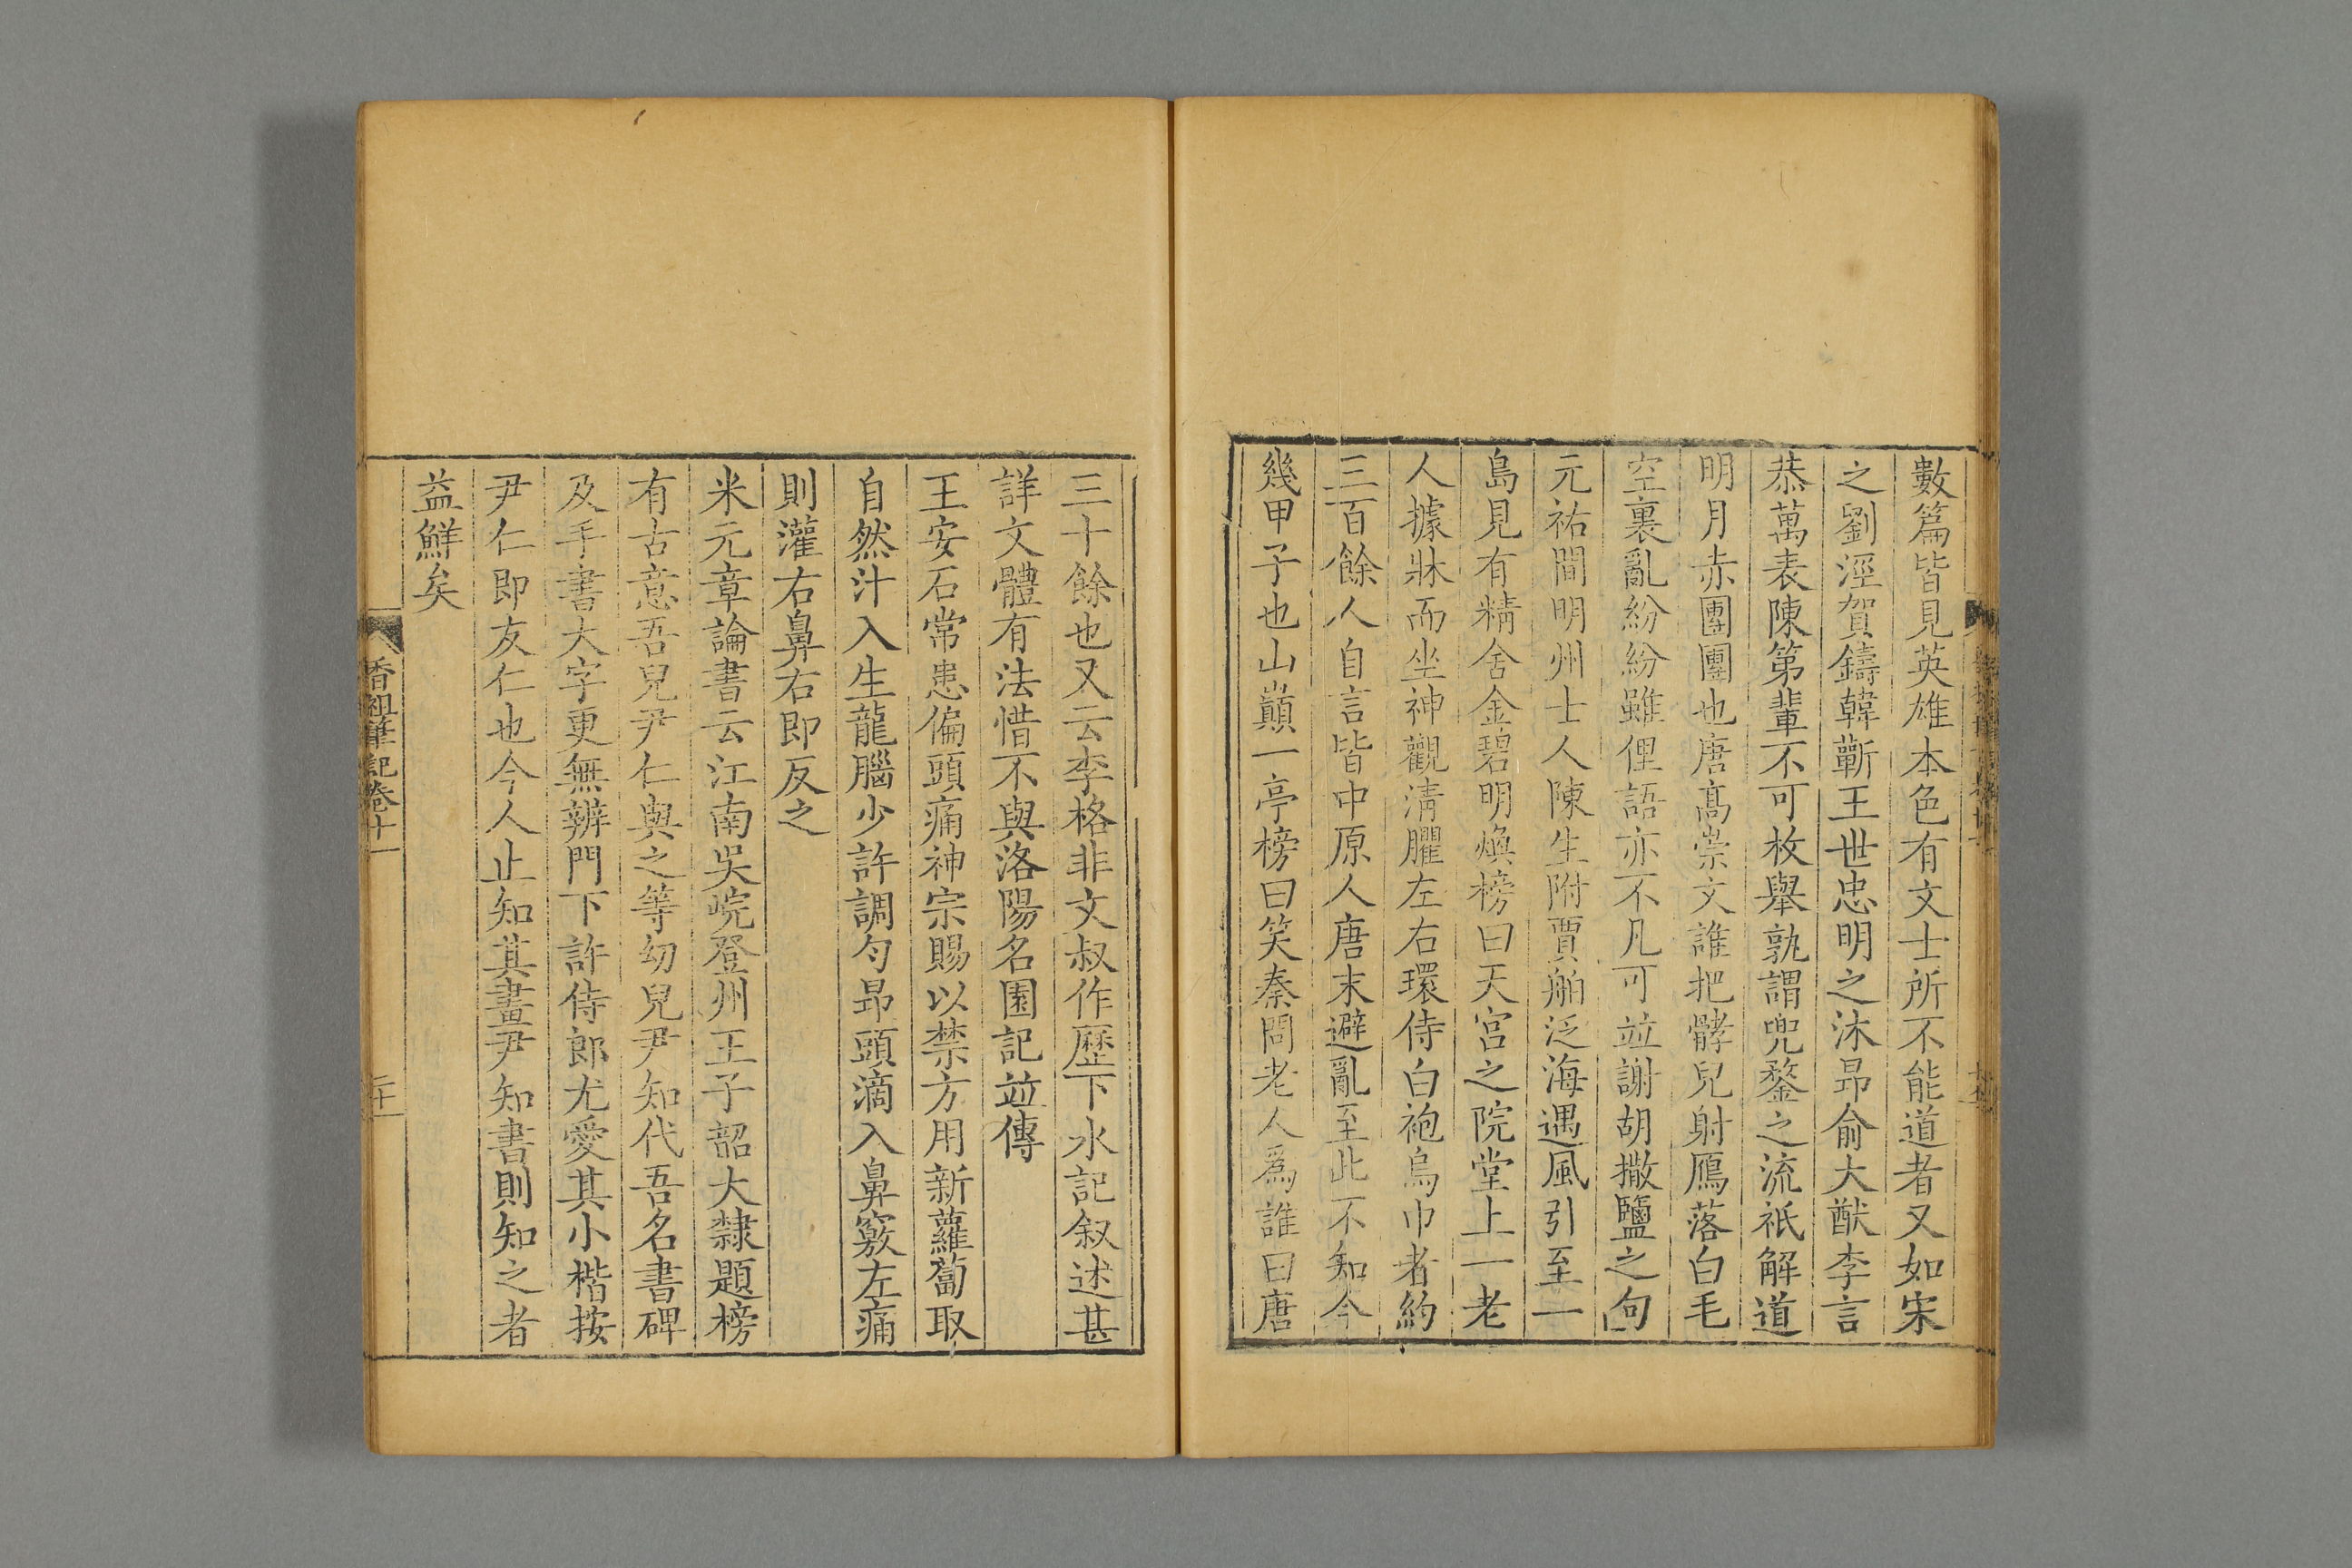 數篇皆見英雄本色有文士所不能道者又如宋
之劉涇賀鑄韓蘄王世忠明之沐昂俞大猷李言
恭萬表陳第輩不可枚舉孰謂兜鍪之流祇解道
明月赤團團也唐髙崇文誰把髇兒射鴈落白毛
空裏亂紛紛雖俚語亦不凡可竝謝胡撒鹽之句
元祐間明州士人陳生附賈舶泛海遇風引至一
島見有精舍金碧明煥榜曰天宫之院堂上一老
人據牀而坐神觀淸臞左右環侍白袍烏巾者約
三百餘人自言皆中原人唐末避亂至此不知今
幾甲子也山巔一亭榜曰笑秦問老人爲誰曰唐
三十餘也又云李格非文叔作歷下水記叙述甚
詳文體有法惜不與洛陽名園記竝傳
王安石常患偏頭痛神宗賜以禁方用新蘿蔔取
自然汁入生龍腦少許調匀昻頭滴入鼻竅左痛
則灌右鼻右即反之
米元章論書云江南吳皖登州王子韶大隸題榜
有古意吾兒尹仁與之等幼兒尹知代吾名書碑
及手書大字更無辨門下許侍郎尤愛其小楷按
尹仁即友仁也今人止知其畫尹知書則知之者
益鮮矣
香祖筆記卷十一
二十一